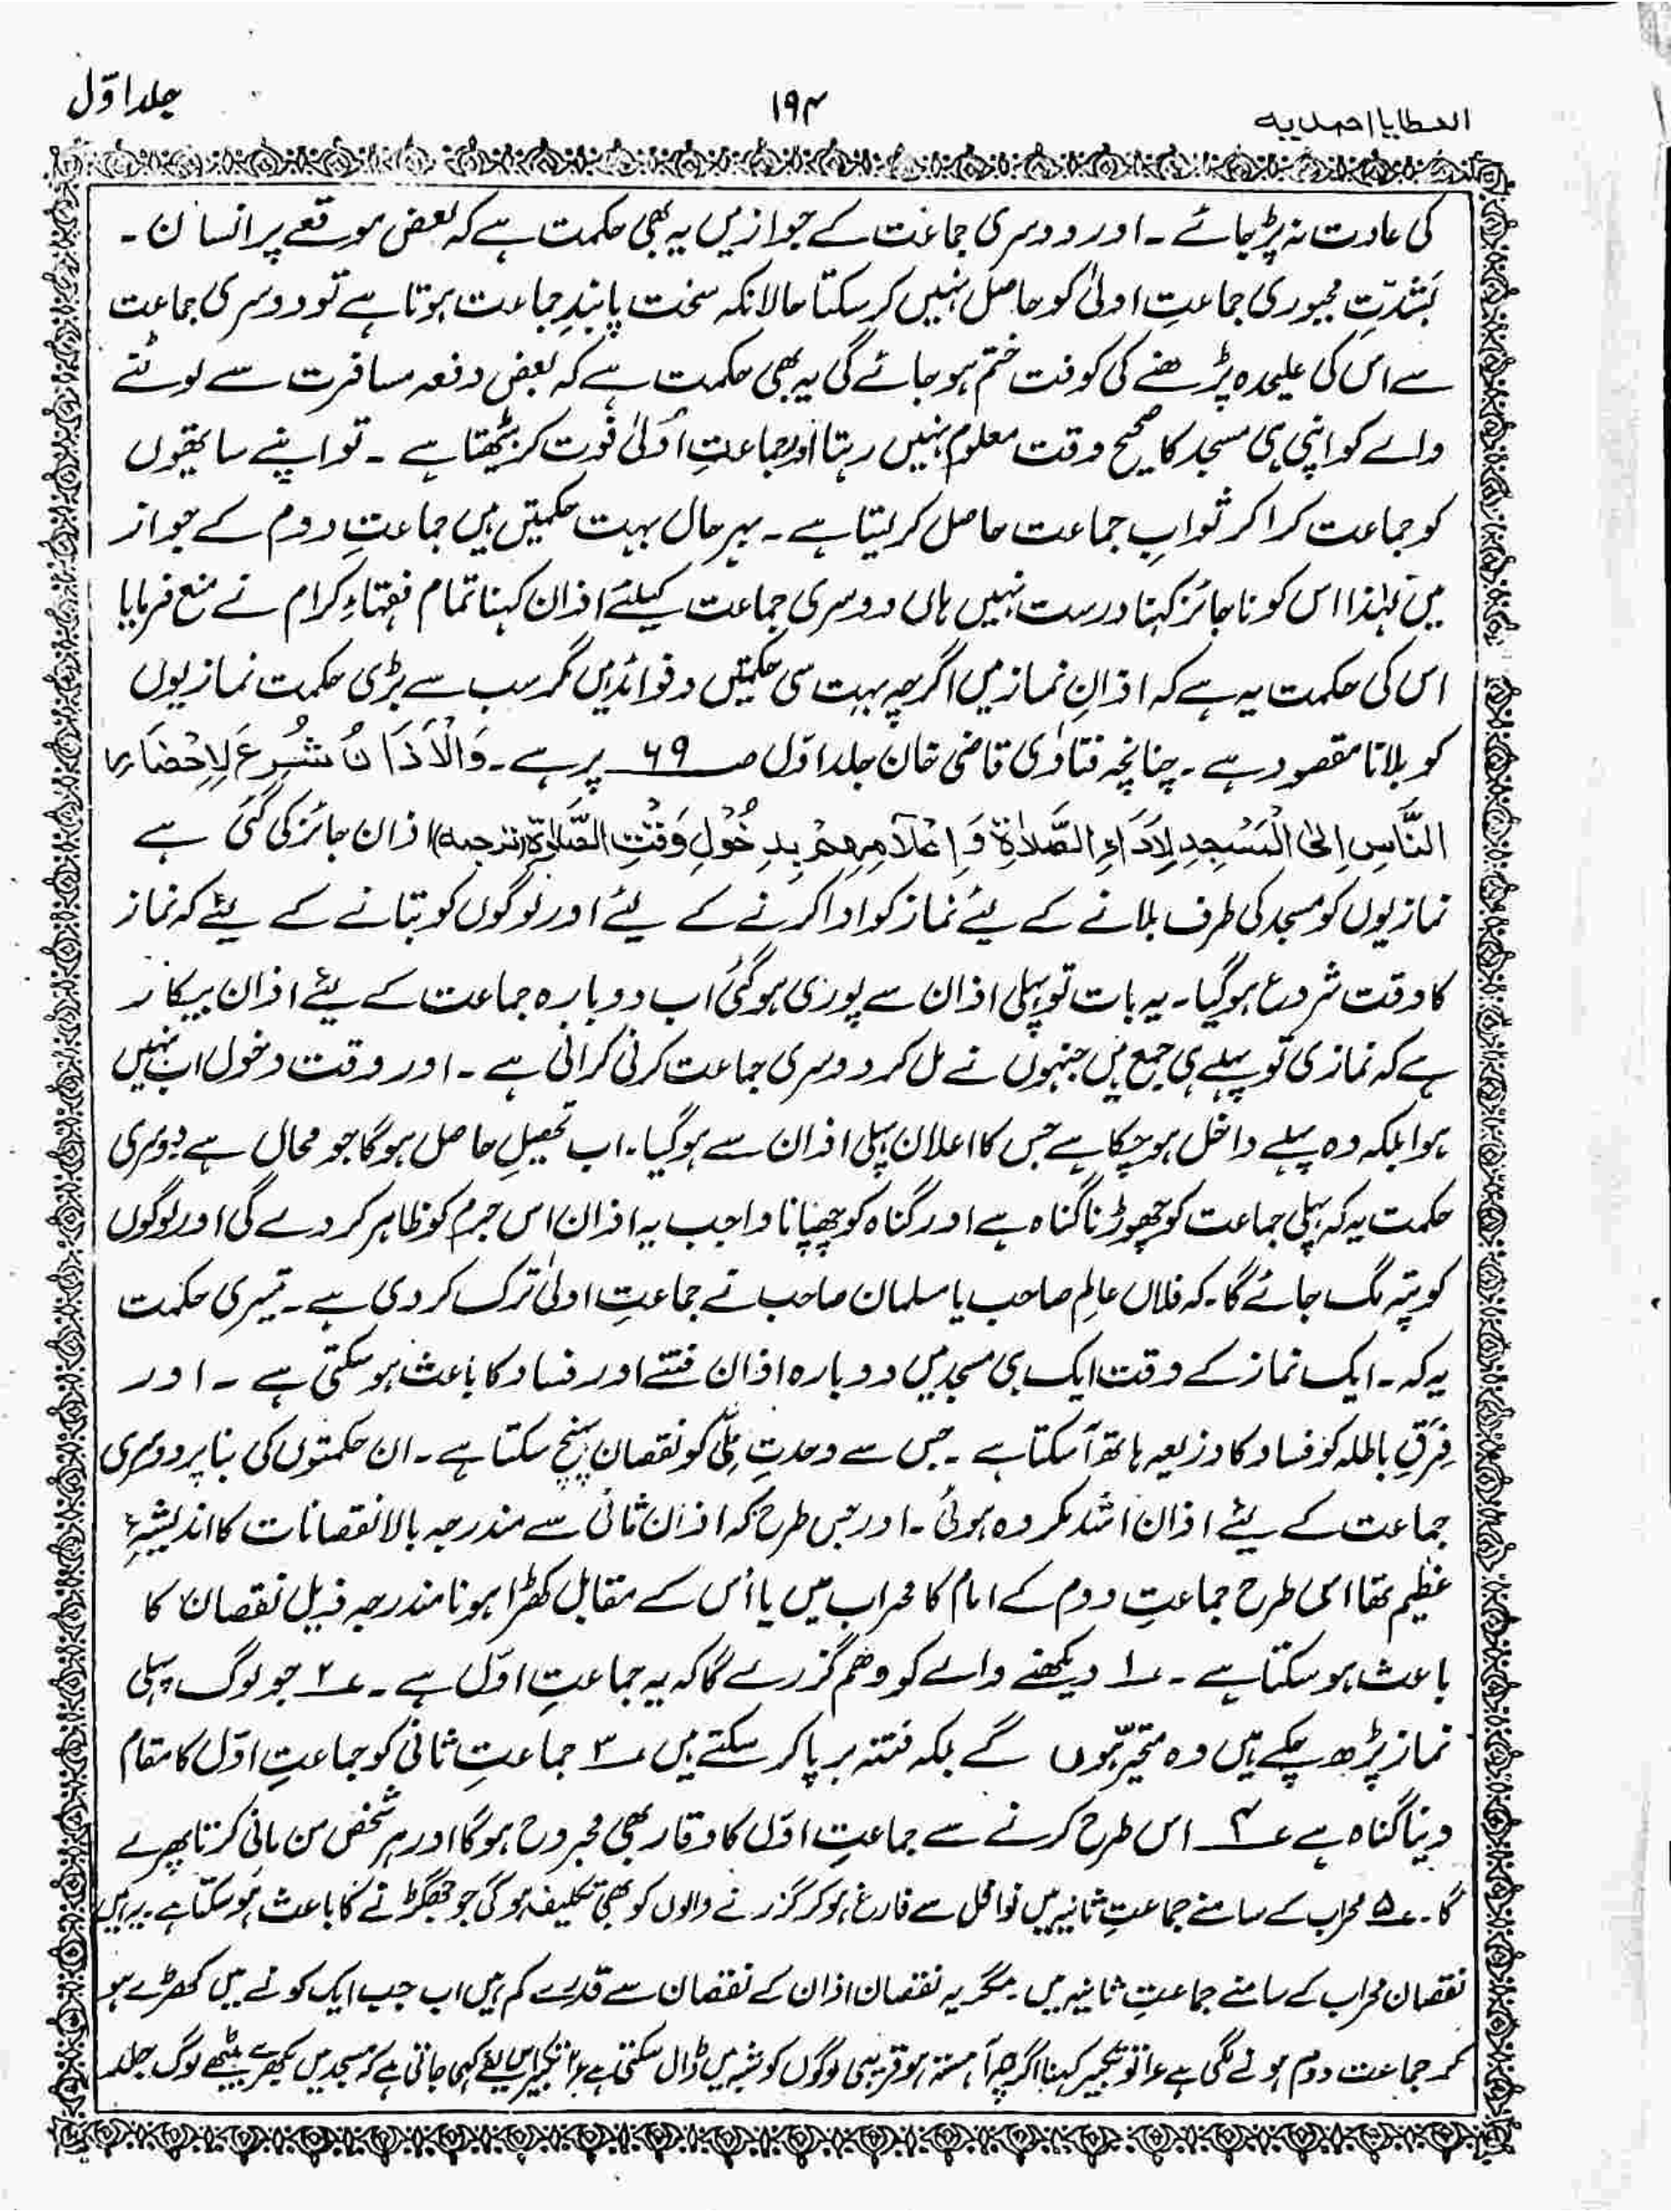 العطایا احمدیہ
۱۹۴
جلد اوّل
کی عادت نہ پڑ جائے ۔ اور دوسری جماعت کے جواز میں یہ بھی حکمت ہے کہ بعض موقعے پر انسان ۔
بَشدّتِ مجبوری جماعتِ اولیٰ کو حاصل نہیں کر سکتا حالانکہ سخت پابندِ جماعت ہوتا ہے تو دوسری جماعت
سے اس کی علیحدہ پڑھنے کی کوفت ختم ہو جائے گی یہ بھی حکمت ہے کہ بعض دفعہ مسافرت سے لوٹنے
والے کو اپنی ہی مسجد کا صحیح وقت معلوم نہیں رہتا اور جماعتِ اُولیٰ فوت کر بیٹھتا ہے ۔ تو اپنے ساتھیوں
کو جماعت کرا کر ثوابِ جماعت حاصل کر لیتا ہے ۔ بہر حال بہت حکمتیں ہیں جماعتِ دوم کے جواز
میں لہٰذا اس کو ناجائز کہنا درست نہیں ہاں دوسری جماعت کیلئے اذان کہنا تمام فقہاءِ کرام نے منع فرمایا
اس کی حکمت یہ ہے کہ اذانِ نماز میں اگرچہ بہت سی حکمتیں و فوائد ہیں مگر سب سے بڑی حکمت نمازیوں
کو بلانا مقصود ہے ۔ چنانچہ فتاوٰی قاضی خان جلد اوّل صـ ۶۹ پر ہے ۔ وَالْاَذَانُ شُرِعَ لِاِحْضَارِ
النَّاسِ اِلیٰ الْمَسْجِدِ لِاَدَاءِ الصَّلٰاۃِ وَ اِعْلَامِھِمْ بِدِخُوْلِ وَقْتِ الصَّلٰوۃِ (ترجمہ) اذان جائز کی گئی ہے
نمازیوں کو مسجد کی طرف بلانے کے لیئے نماز کو ادا کرنے کے لیئے اور لوگوں کو بتانے کے لیئے کہ نماز
کا وقت شروع ہو گیا ۔ یہ بات تو پہلی اذان سے پوری ہو گئی اب دوبارہ جماعت کے لیئے اذان بیکار
ہے کہ نمازی تو پہلے ہی جمع ہیں جنہوں نے مل کر دوسری جماعت کرنی کرانی ہے ۔ اور وقت دخول اب نہیں
ہوا بلکہ وہ پہلے داخل ہو چکا ہے جس کا اعلان پہلی اذان سے ہو گیا ۔ اب تحصیلِ حاصل ہو گا جو محال ہے دوسری
حکمت یہ کہ پہلی جماعت کو چھوڑنا گناہ ہے اور گناہ کو چھپانا واجب یہ اذان اس جرم کو ظاہر کر دے گی اور لوگوں
کو پتہ لگ جائے گا ۔ کہ فلاں عالِم صاحب یا مسلمان صاحب نے جماعتِ اولیٰ ترک کر دی ہے ۔ تیسری حکمت
یہ کہ ۔ ایک نماز کے وقت ایک ہی مسجد میں دوبارہ اذان فتنے اور فساد کا باعث ہو سکتی ہے ۔ اور
فِرَقِ باطلہ کو فساد کا ذریعہ ہاتھ آ سکتا ہے ۔ جس سے وحدتِ مِلّی کو نقصان پہنچ سکتا ہے ۔ ان حکمتوں کی بنا پر دوسری
جماعت کے لیئے اذان اشد مکروہ ہوئی ۔ اور جس طرح کہ اذان ثانی سے مندرجہ بالا نقصانات کا اندیشۂ
عظیم تھا اسی طرح جماعتِ دوم کے امام کا محراب میں یا اُس کے مقابل کھڑا ہونا مندرجہ ذیل نقصان کا
باعث ہو سکتا ہے ۔ ۱؎ دیکھنے والے کو وھم گزرے گا کہ یہ جماعتِ اوّل ہے ۔ ۲؎ جو لوگ پہلی
نماز پڑھ چکے ہیں وہ متحیّر ہوں گے بلکہ فتنہ برپا کر سکتے ہیں ۳؎ جماعتِ ثانی کو جماعتِ اوّل کا مقام
دینا گناہ ہے ۴؎ اس طرح کرنے سے جماعتِ اوّل کا وقار بھی مجروح ہو گا اور ہر شخص من مانی کرتا پھرے
گا ۔ ۵؎ محراب کے سامنے جماعتِ ثانیہ میں نوافل سے فارغ ہو کر گزرنے والوں کو بھی تکلیف ہو گی جو جھگڑنے کا باعث ہو سکتا ہے ۔ یہ ہیں
نقصان محراب کے سامنے جماعتِ ثانیہ میں ۔ مگر یہ نقصان اذان کے نقصان سے قدرے کم ہیں اب جب ایک کونے میں کھڑے ہو
کر جماعت دوم ہونے لگی ہے تو تکبیر کہنا اگرچہ آہستہ ہو قریبی لوگوں کو شبہ میں ڈال سکتی ہے تکبیر اس لیئے کہی جاتی ہے کہ مسجد میں بکھرے بیٹھے لوگ جلد